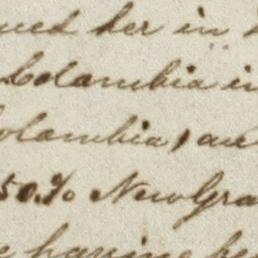 her in
Colambia in
olambia, au
50.% New Gra
having be